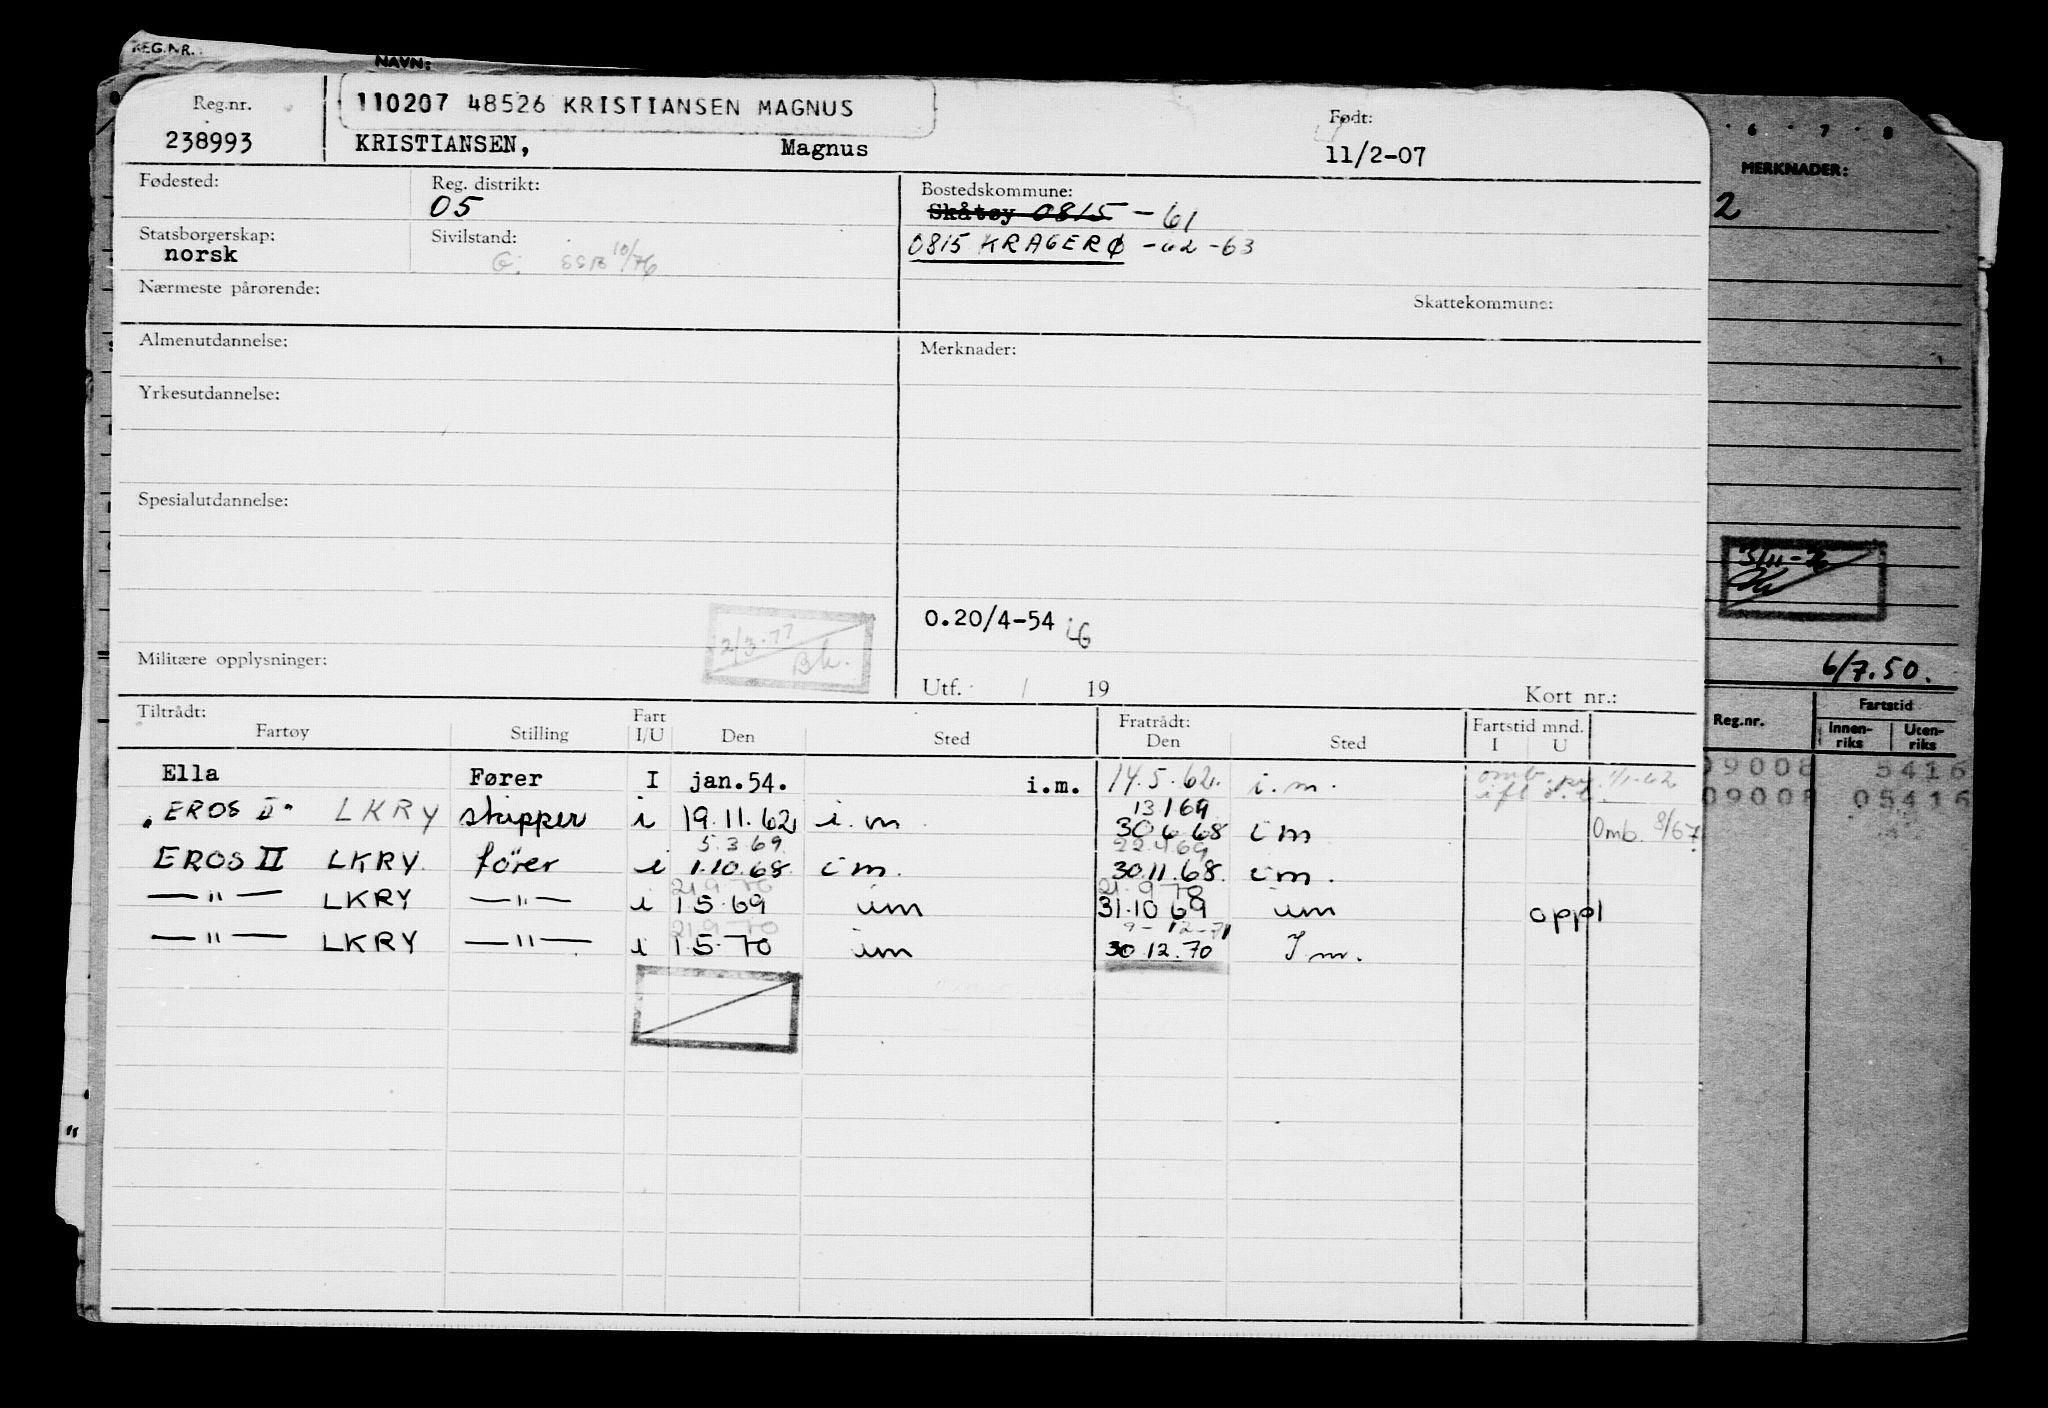 REG.NR.
NAVN:
Reg.nr.
110207 48526 KRISTIANSEN MAGNUS
Født:
238993
KRISTIANSEN, Magnus
11/2-07
6 7 8
MERKNADER:
2
Fødested:
Reg. distrikt:
05
Bostedskommune:
Skåtøy 0815 - 61
0815 KRAGERØ -62-63
Statsborgerskap:
norsk
Sivilstand:
G. SSB 10/76
Nærmeste pårørende:
Skattekommune:
Almenutdannelse:
Merknader:
Yrkesutdannelse:
Spesialutdannelse:
0.20/4-54
2/3.77
Bh.
Militære opplysninger:
Utf. / 19
Kort nr.:
6/7.50.
Tiltrådt:
Fartøy Stilling Fart I/U Den Sted
Fratrådt:
Den Sted
Fartstid mnd.
I U
Reg.nr.
Fartstid
Innen-riks Uten-riks
Ella Fører I jan.54. i.m. 14.5.62. i.m. omb. 1/1-62
09008 5416
13.1 69
"EROS II" LKRY skipper i 19.11.62 i.m 30 6 68 im Omb. 8/67
09008 05416
5.3 69 22.4 69
EROS II LKRY. fører i 1.10.68. im. 30.11.68. im.
21 9 70 21.9 70
—"— LKRY —"— i 1 5.69 im 31.10 69 im oppl
21 9 70 9-12-71
—"— LKRY —"— i 1.5.70 im 30.12.70 I m.